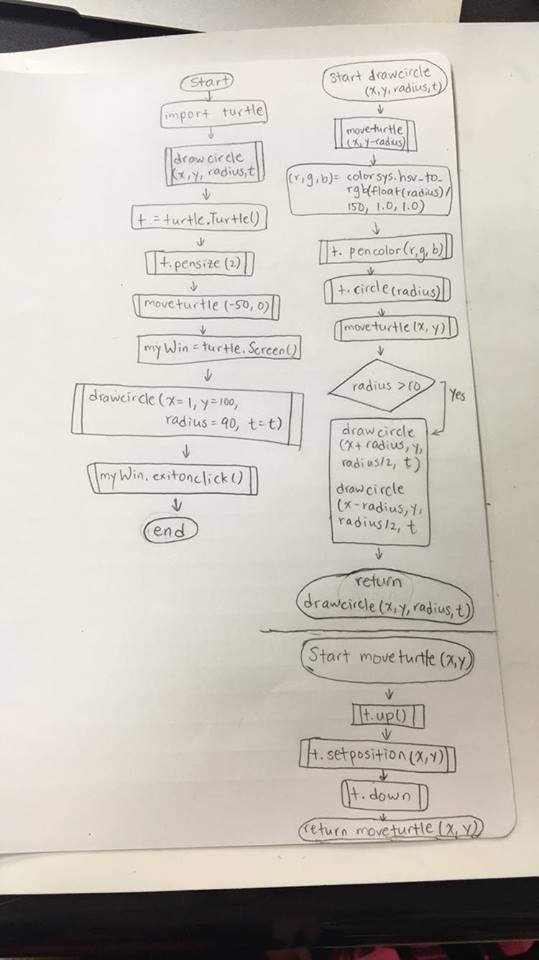 Start
import turtle
drawcircle
(x,y, radius,t
t = turtle.Turtle()
t.pensize(2)
moveturtle (-50,0)
myWin = turtle.Screen()
drawcircle (x=1, y=100,
radius = 90, t=t)
myWin.exitonclick()
end
Start drawcircle
(x,y,radius,t)
moveturtle
(x,y-radius)
(r,g,b)= colorsys.hsv_to_
rgb(float(radius)/
150, 1.0, 1.0)
t. pencolor(r,g,b)
t.circle(radius)
moveturtle(x,y)
radius >10
Yes
drawcircle
(x+radius,y,
radius/2, t)
drawcircle
(x-radius,y,
radius/2, t
return
drawcircle(x,y,radius,t)
Start moveturtle (x,y)
t.up()
t.setposition(x,y)
t.down
return moveturtle(x,y)